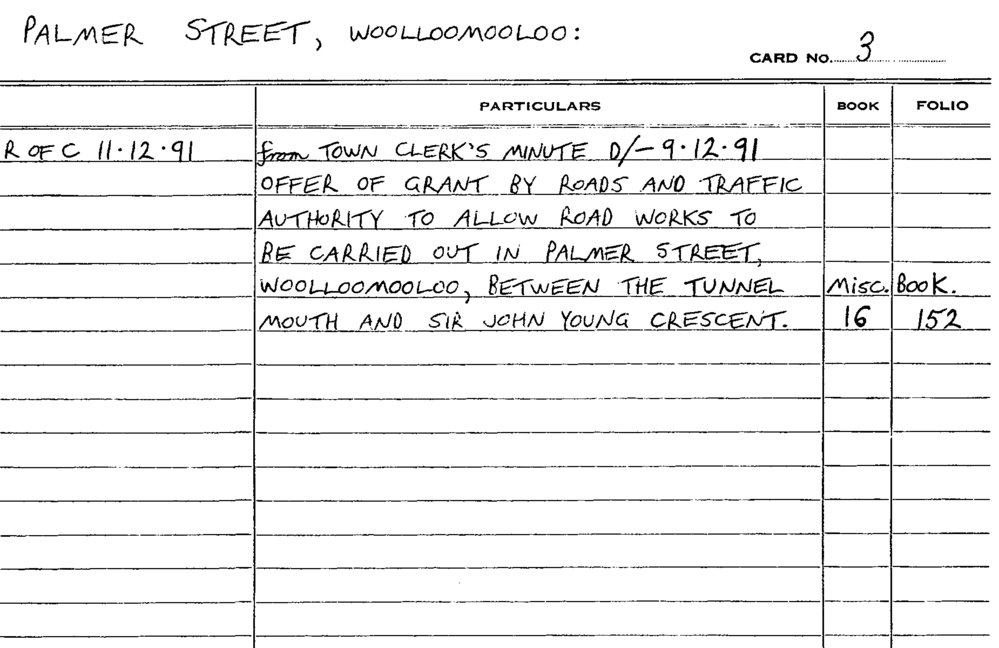 PALMER STREET, WOOLLOOMOOLOO:
CARD NO. 3
PARTICULARS BOOK FOLIO
R OF C 11·12·91 from TOWN CLERK'S MINUTE D/- 9·12·91
OFFER OF GRANT BY ROADS AND TRAFFIC
AUTHORITY TO ALLOW ROAD WORKS TO
BE CARRIED OUT IN PALMER STREET,
WOOLLOOMOOLOO, BETWEEN THE TUNNEL Misc. Book.
MOUTH AND SIR JOHN YOUNG CRESCENT. 16 152